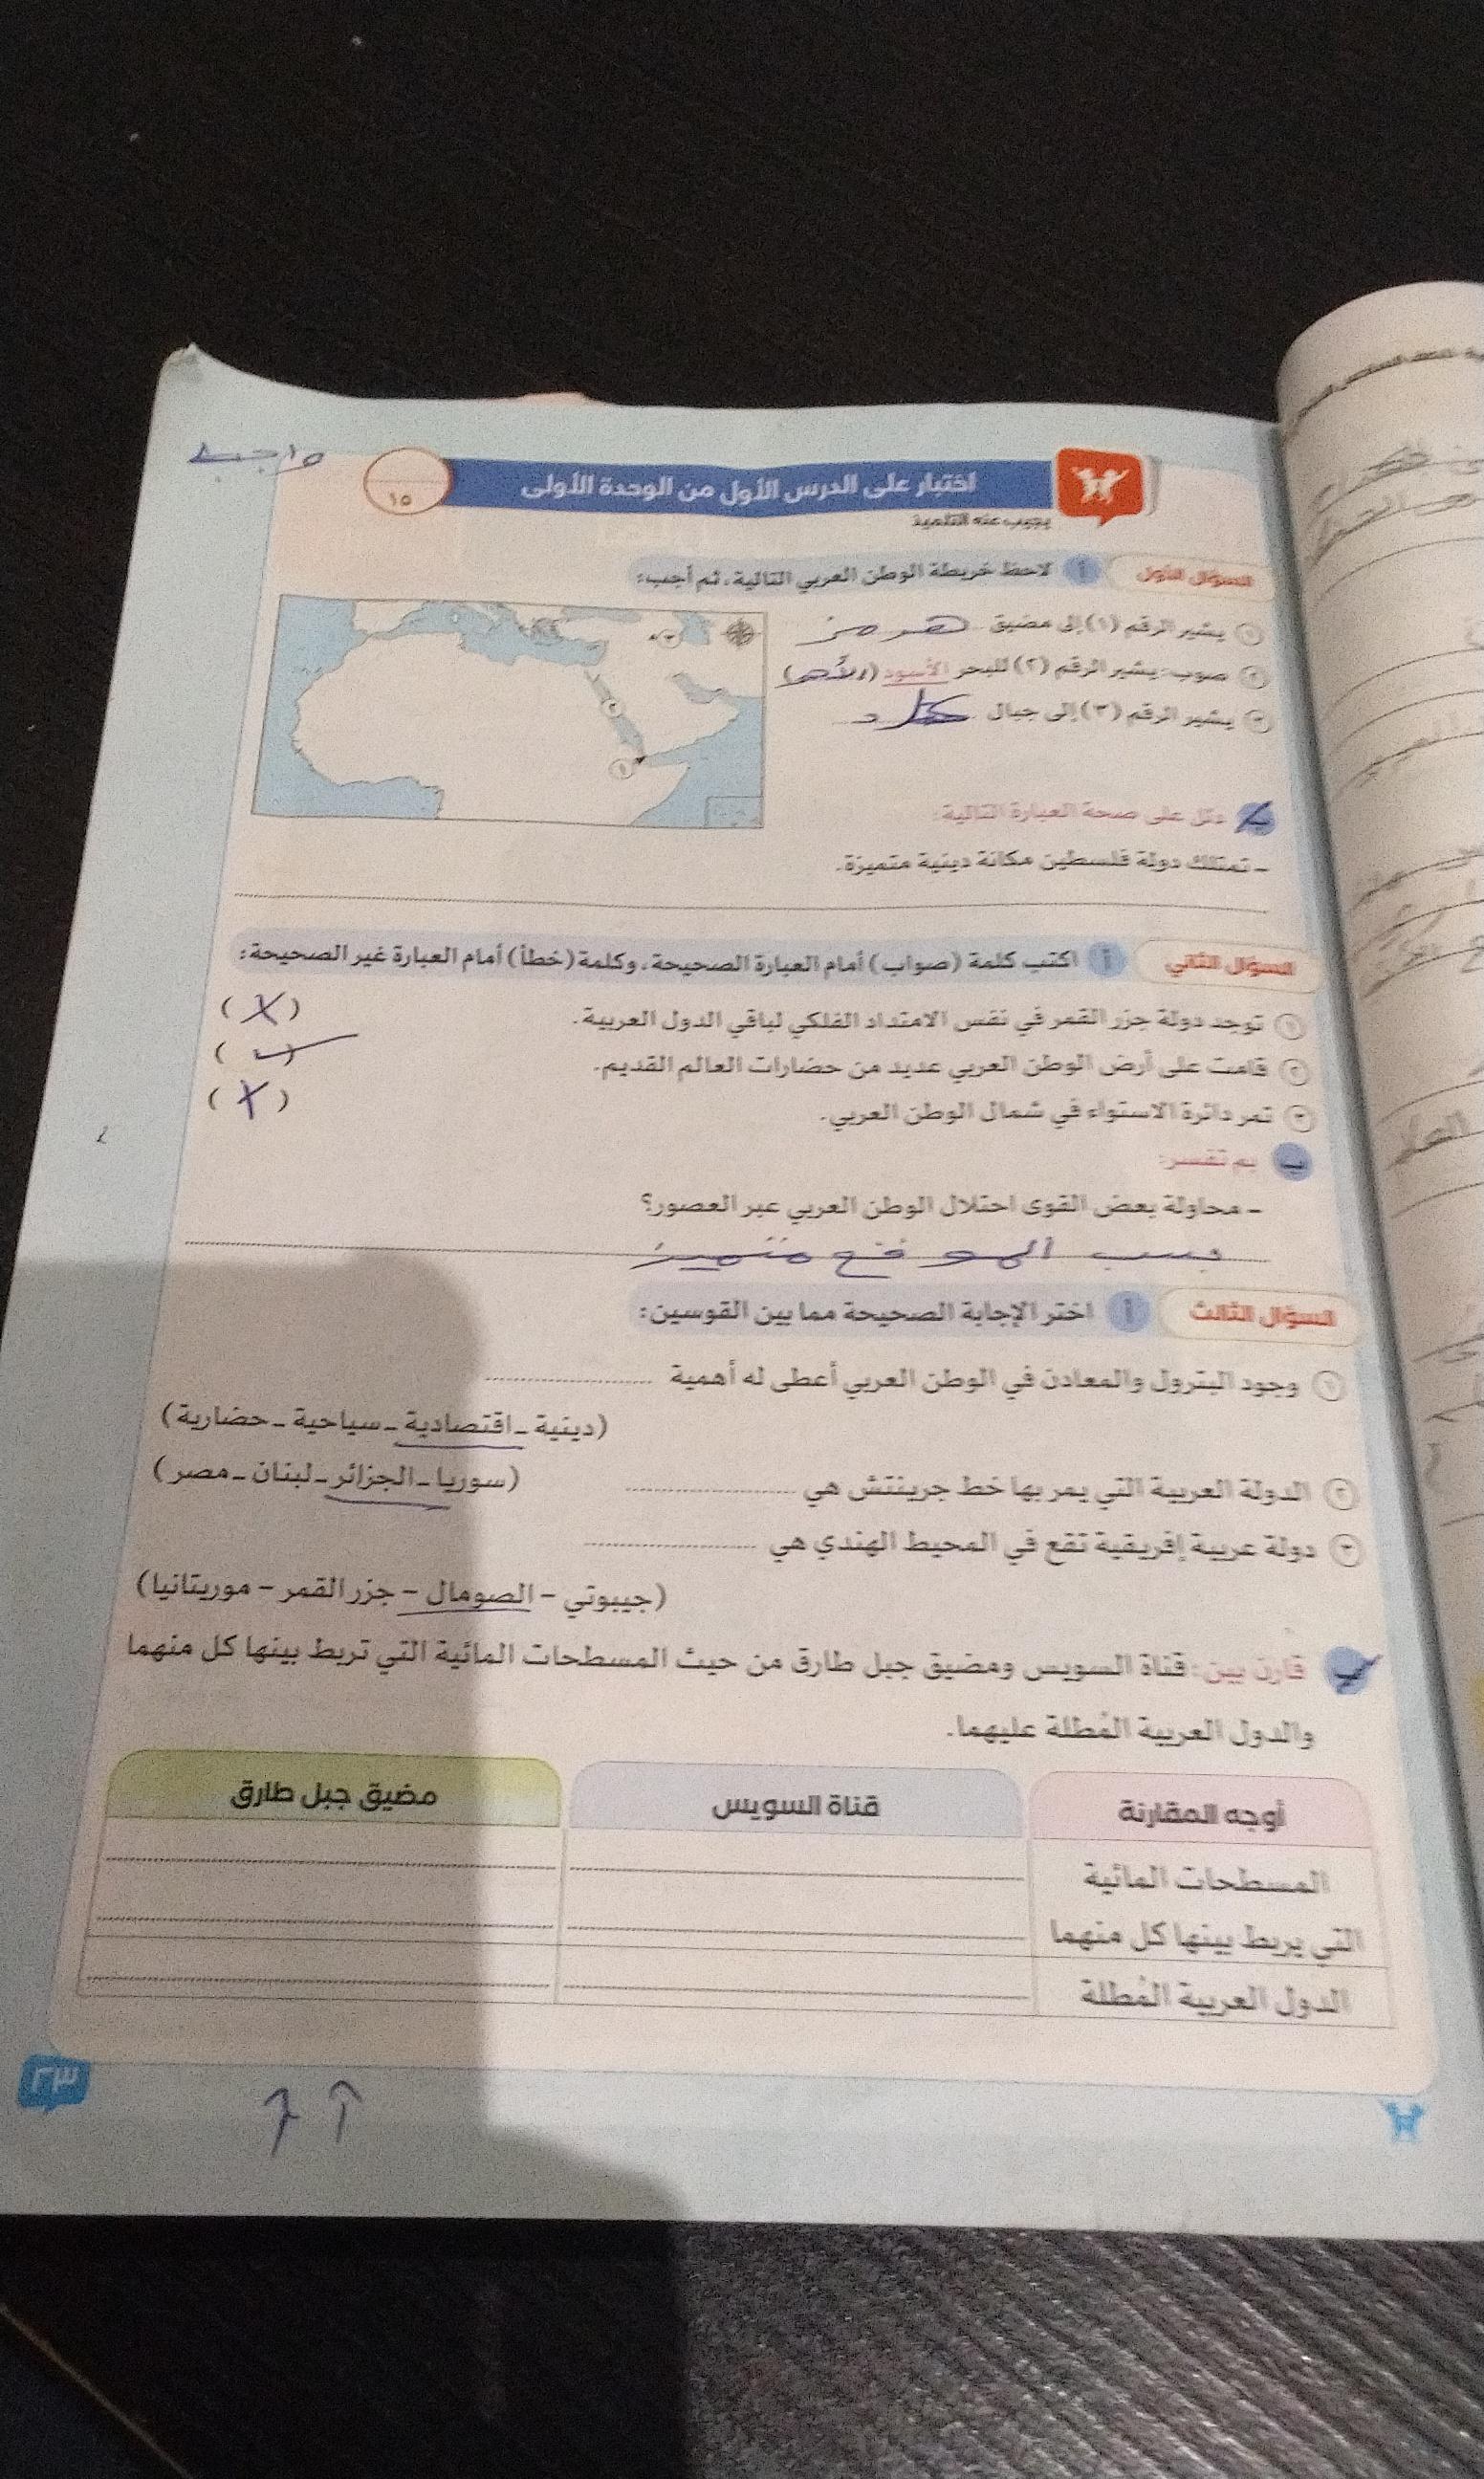 واجب
اختبار على الدرس الأول من الوحدة الأولى
١٥
يجيب عنه التلميذ
السؤال الأول أ لاحظ خريطة الوطن العربي التالية، ثم أجب:
١ يشير الرقم (١) إلى مضيق هرمز
٢ صوب: يشير الرقم (٢) للبحر الأسود (الأحمر)
٣ يشير الرقم (٣) إلى جبال
٣
٢
١
ب دلل على صحة العبارة التالية:
- تمتلك دولة فلسطين مكانة دينية متميزة.
السؤال الثاني أ اكتب كلمة (صواب) أمام العبارة الصحيحة، وكلمة (خطأ) أمام العبارة غير الصحيحة:
١ توجد دولة جزر القمر في نفس الامتداد الفلكي لباقي الدول العربية. (X)
٢ قامت على أرض الوطن العربي عديد من حضارات العالم القديم. (✓)
٣ تمر دائرة الاستواء في شمال الوطن العربي. (X)
ب بم تفسر:
- محاولة بعض القوى احتلال الوطن العربي عبر العصور؟
بسبب الموقع متميز
السؤال الثالث أ اختر الإجابة الصحيحة مما بين القوسين:
١ وجود البترول والمعادن في الوطن العربي أعطى له أهمية
(دينية - اقتصادية - سياحية - حضارية)
٢ الدولة العربية التي يمر بها خط جرينتش هي (سوريا - الجزائر - لبنان - مصر)
٣ دولة عربية إفريقية تقع في المحيط الهندي هي
(جيبوتي - الصومال - جزر القمر - موريتانيا)
ب قارن بين: قناة السويس ومضيق جبل طارق من حيث المسطحات المائية التي تربط بينها كل منهما
والدول العربية المُطلة عليهما.
أوجه المقارنة قناة السويس مضيق جبل طارق
المسطحات المائية
التي يربط بينها كل منهما
الدول العربية المُطلة
٢٣